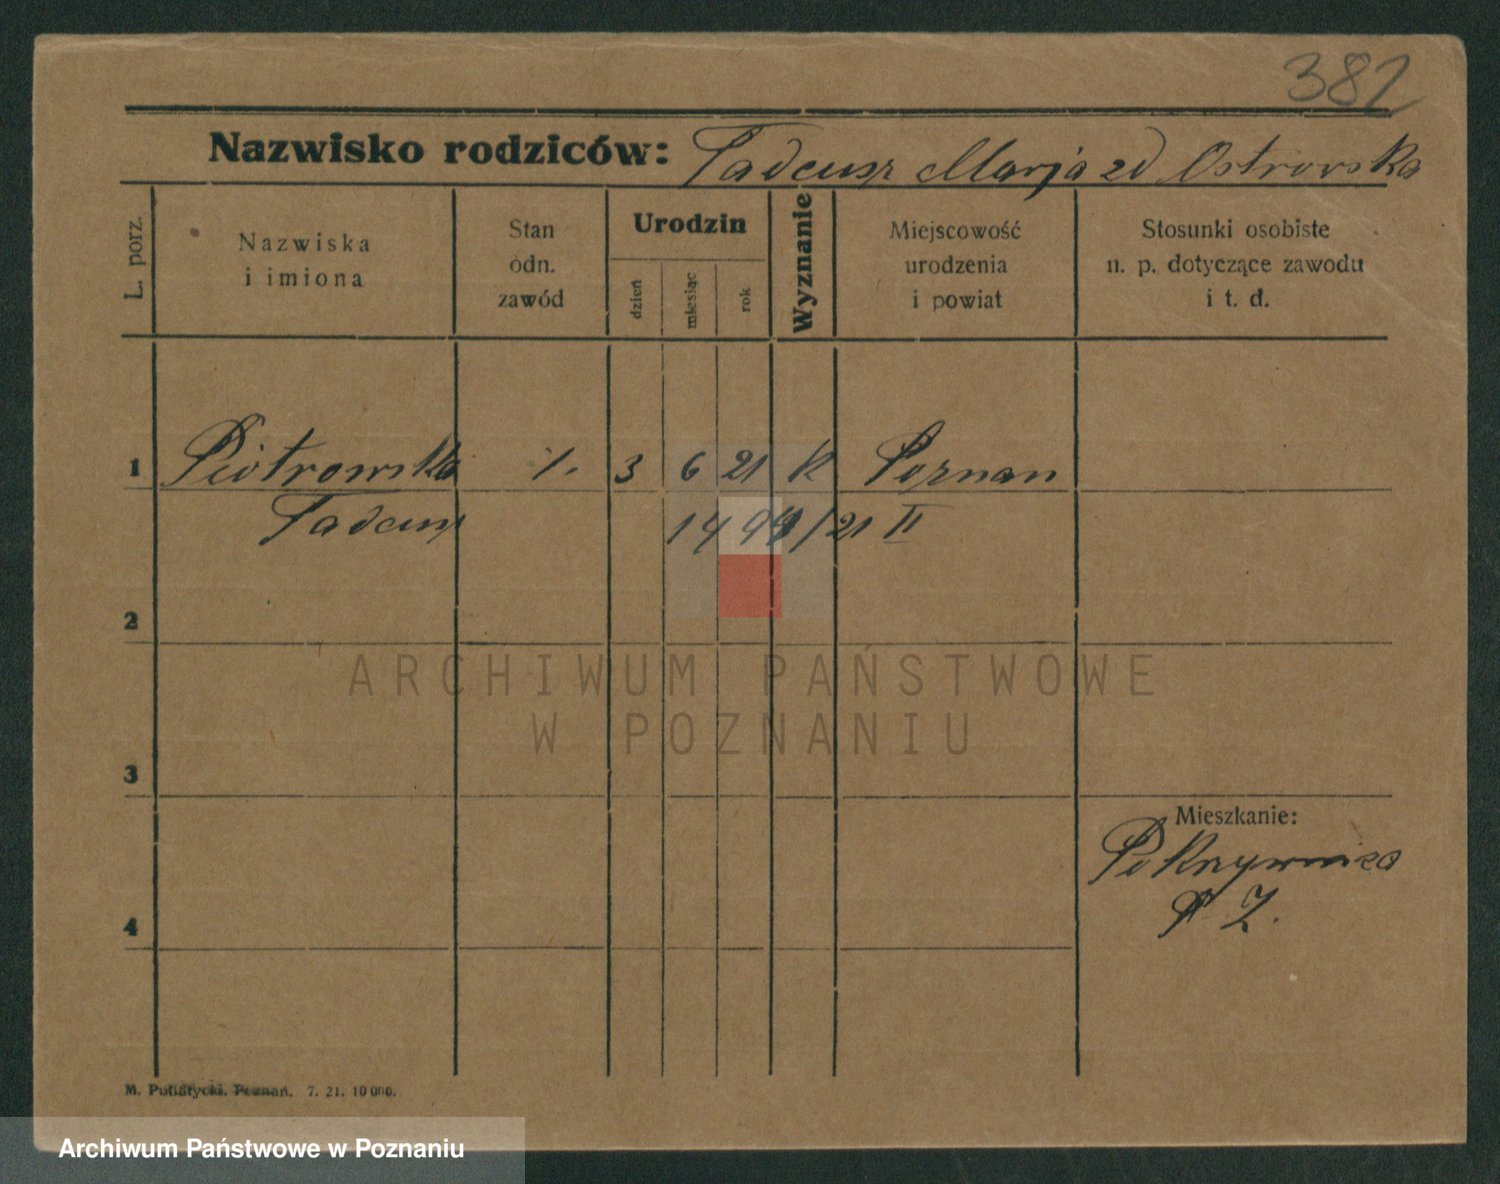 382
Nazwisko rodziców: Tadeusz Marja zd Ostrowska
L. porz.
Nazwiska
i imiona
Stan
odn.
zawód
Urodzin
dzień
miesiąc
rok
Wyznanie
Miejscowość
urodzenia
i powiat
Stosunki osobiste
n. p. dotyczące zawodu
i t. d.
1 Piotrowska 3 6 21 k Poznan
Tadeusz /21 II
2
ARCHIWUM PAŃSTWOWE
W POZNANIU
3
Mieszkanie:
4
M. Putiatycki. Poznań. 7. 21. 10 000.
Archiwum Państwowe w Poznaniu